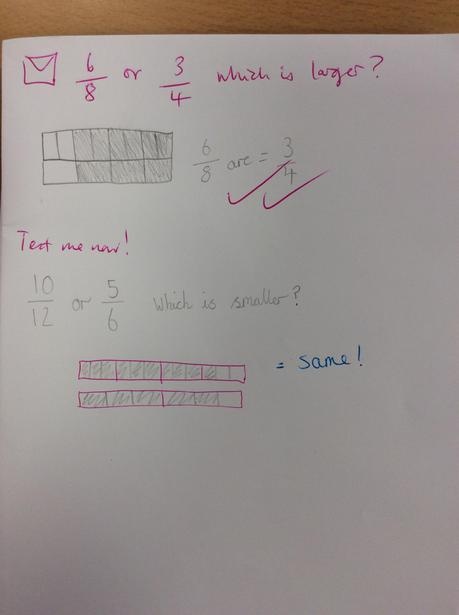 6/8 or 3/4 which is larger?
6/8 are = 3/4
Text me now!
10/12 or 5/6 which is smaller?
= same!